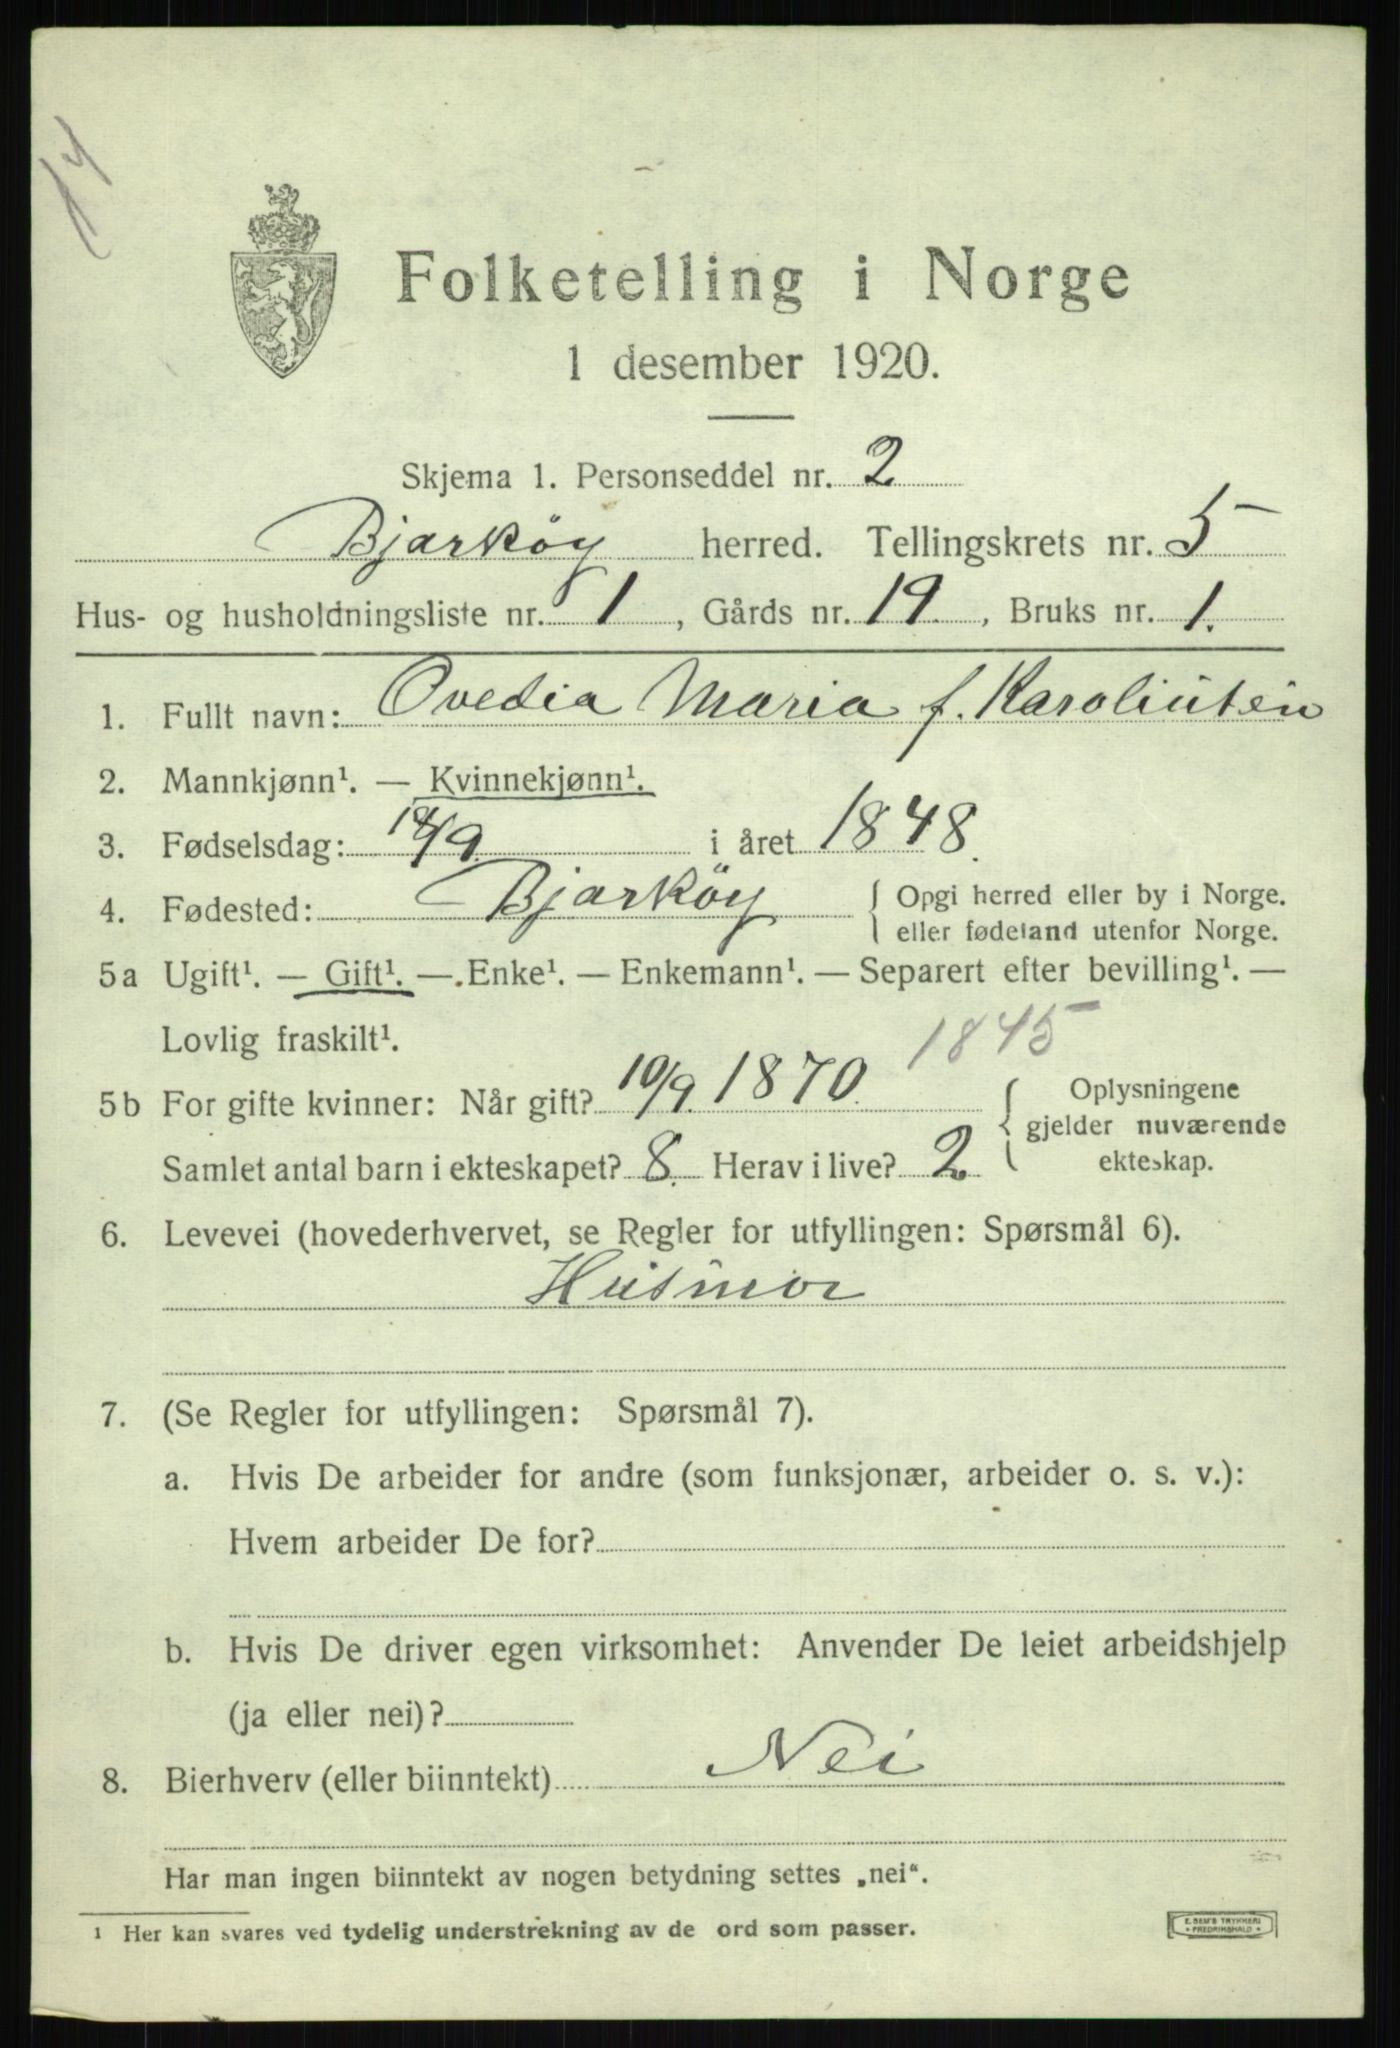 Folketelling i Norge
1 desember 1920.
Skjema 1. Personseddel nr. 2
Bjarköy herred. Tellingskrets nr. 5
Hus- og husholdningsliste nr. 1, Gårds nr. 19., Bruks nr. 1.
1. Fullt navn: Ovedia Maria f. Karolintén
2. Mannkjønn¹. — Kvinnekjønn¹.
3. Fødselsdag: /9. i året 1848.
4. Fødested: Bjarköy { Opgi herred eller by i Norge.
eller fødeland utenfor Norge.
5a Ugift¹. — Gift¹. — Enke¹. — Enkemann¹. — Separert efter bevilling¹. —
Lovlig fraskilt¹.
1845
5b For gifte kvinner: Når gift? 10/9. 1870. { Oplysningene
gjelder nuværende
Samlet antal barn i ekteskapet? 8. Herav i live? 2 ekteskap.
6. Levevei (hovederhvervet, se Regler for utfyllingen: Spørsmål 6).
Husmor
7. (Se Regler for utfyllingen: Spørsmål 7).
a. Hvis De arbeider for andre (som funksjonær, arbeider o. s. v.):
Hvem arbeider De for?
b. Hvis De driver egen virksomhet: Anvender De leiet arbeidshjelp
(ja eller nei)?
8. Bierhverv (eller biinntekt) Nei
Har man ingen biinntekt av nogen betydning settes „nei".
¹ Her kan svares ved tydelig understrekning av de ord som passer.
E. SEM'S TRYKKERI
• FREDRIKSHALD •